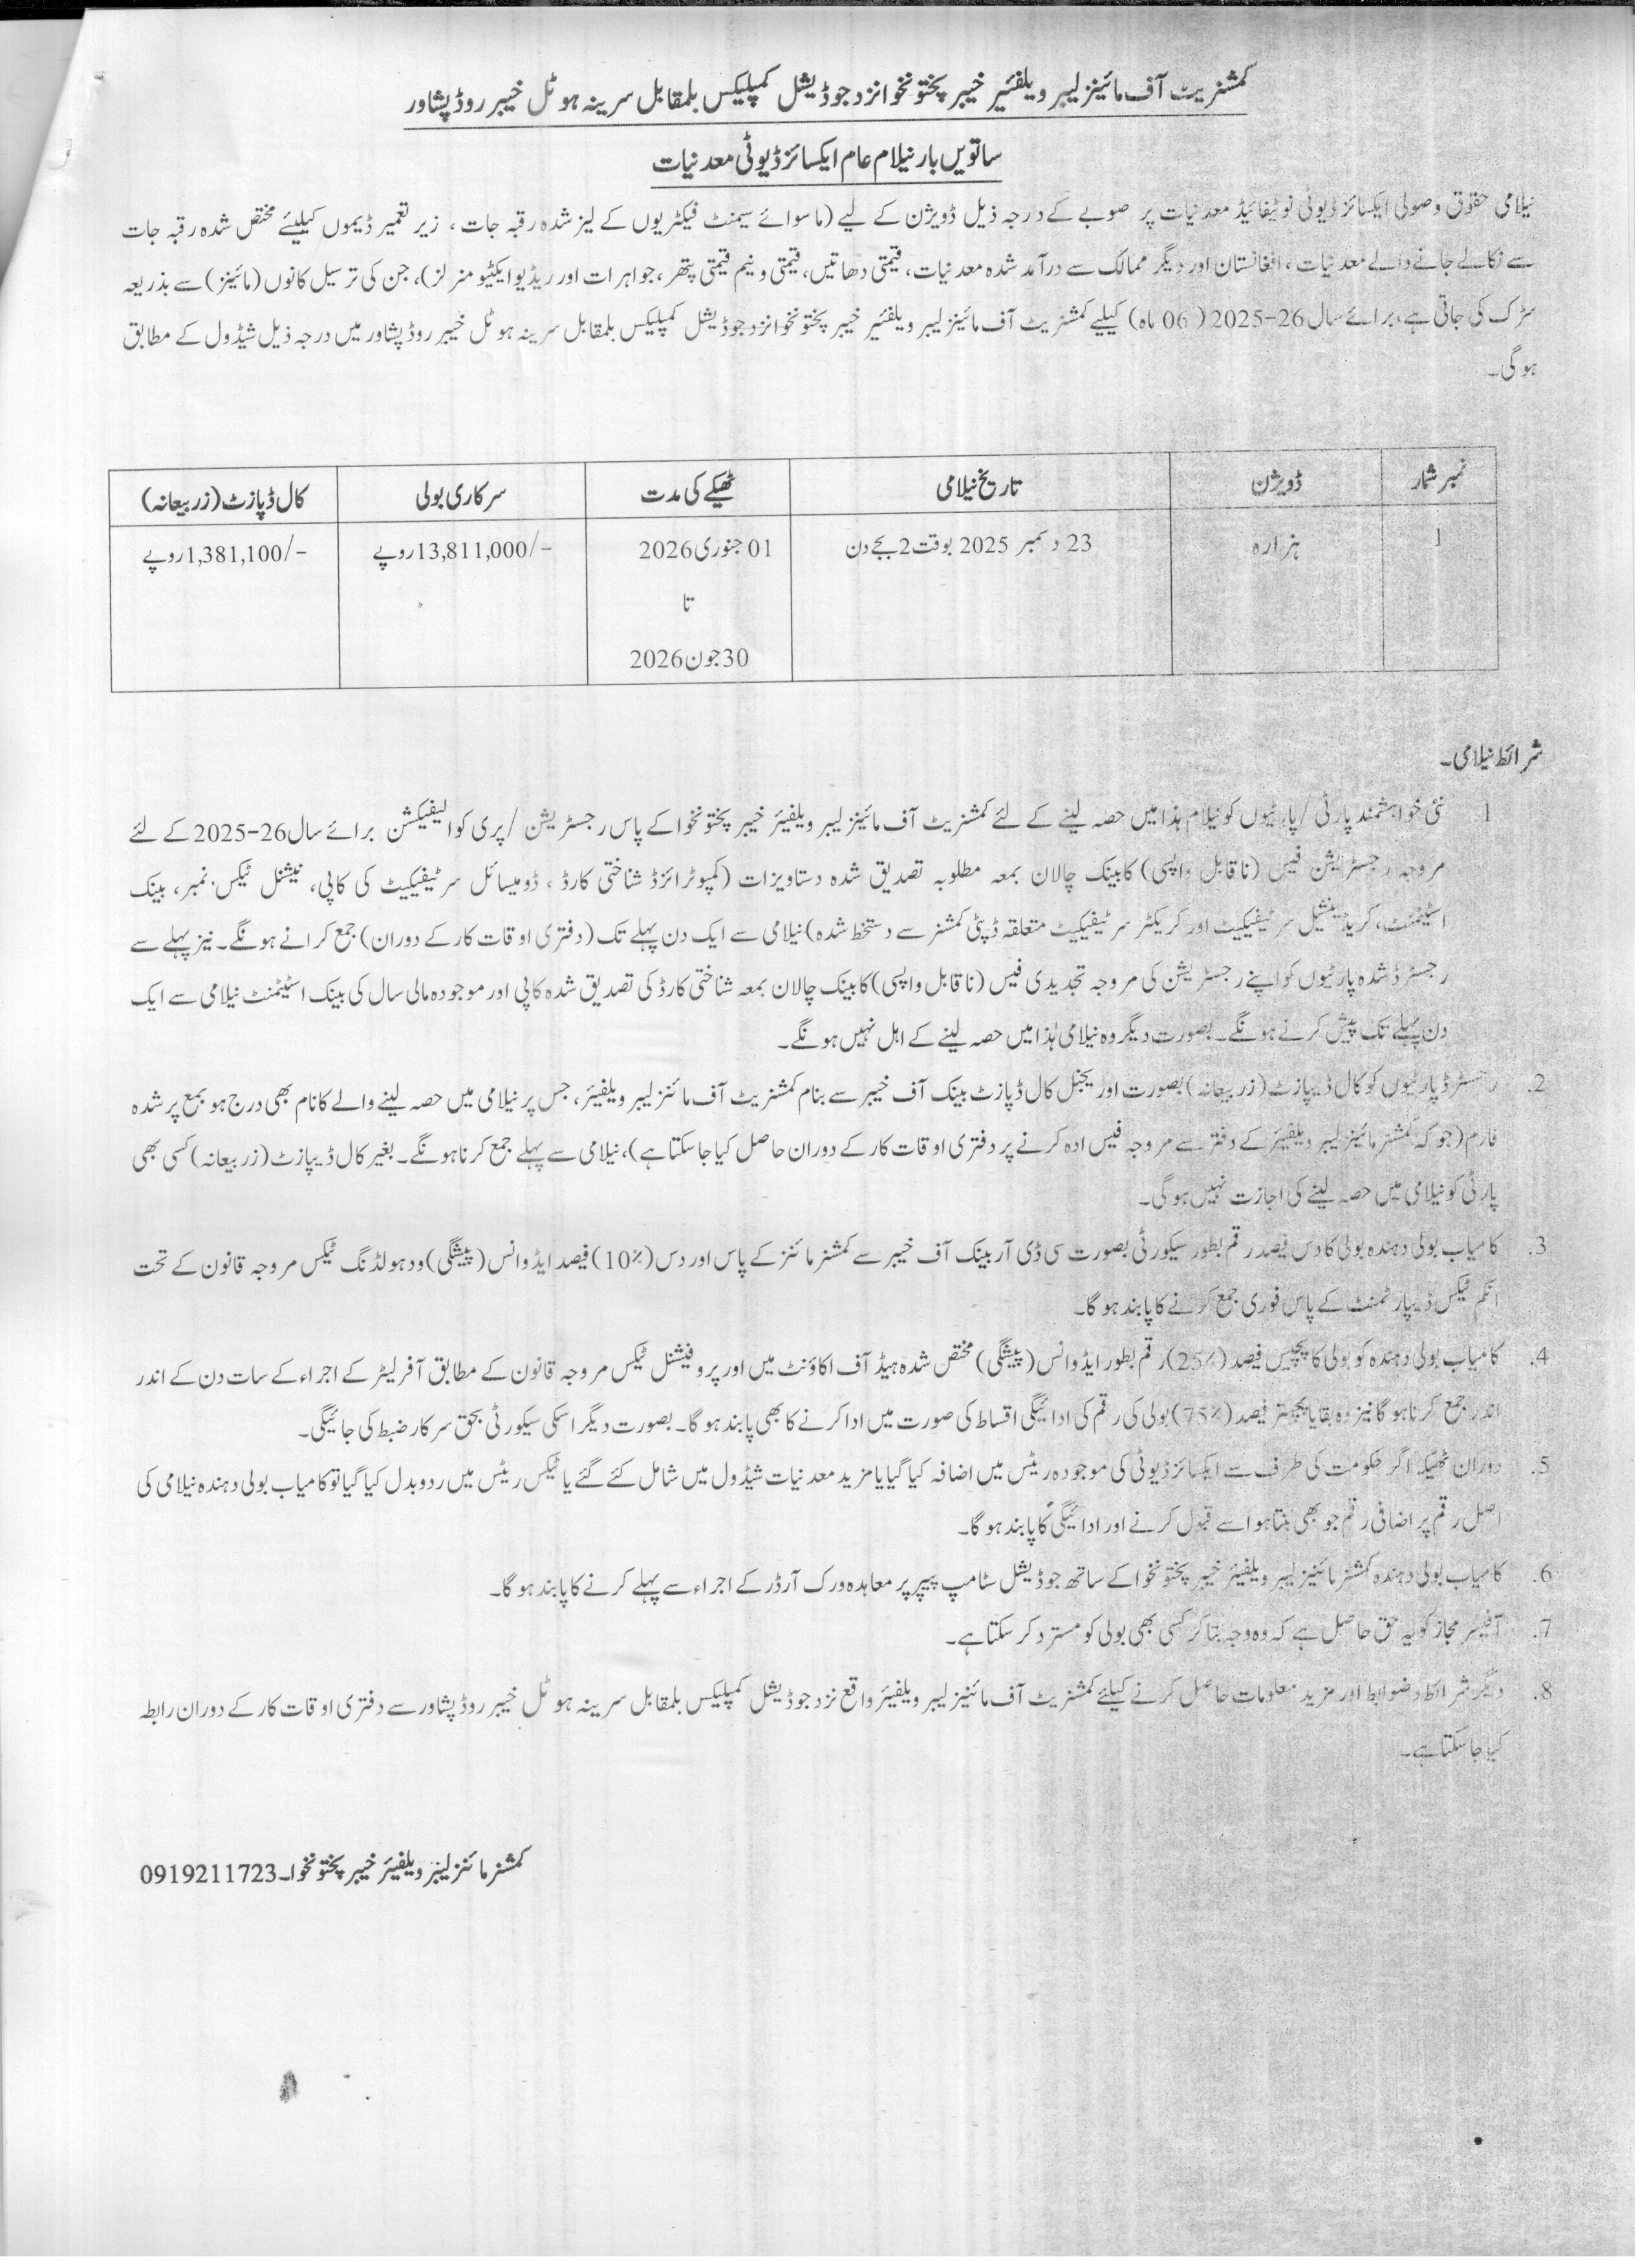 کمشنریٹ آف مائینز لیبر ویلفئیر خیبر پختونخوا نزد جوڈیشل کمپلیکس بلمقابل سرینہ ہوٹل خیبر روڈ پشاور
ساتویں بار نیلام عام ایکسائز ڈیوٹی معدنیات
نیلامی حقوق وصولی ایکسائز ڈیوٹی نوٹیفائیڈ معدنیات پر صوبے کے درجہ ذیل ڈویژن کے لیے (ماسوائے سیمنٹ فیکٹریوں کے لیز شدہ رقبہ جات ، زیر تعمیر ڈیموں کیلیئے مختص شدہ رقبہ جات
سے نکالے جانے والے معدنیات ، افغانستان اور دیگر ممالک سے درآمد شدہ معدنیات، قیمتی دھاتیں، قیمتی و نیم قیمتی پتھر ، جواہرات اور ریڈیو ایکٹیو منرلز)، جن کی ترسیل کانوں (مائینز) سے بذریعہ
سڑک کی جاتی ہے، برائے سال 26-2025 (06 ماہ) کیلیے کمشنریٹ آف مائینز لیبر ویلفئیر خیبر پختونخوا نزد جوڈیشل کمپلیکس بلمقابل سرینہ ہوٹل خیبر روڈ پشاور میں درجہ ذیل شیڈول کے مطابق
ہوگی۔
نمبر شمار ڈویژن تاریخ نیلامی ٹھیکے کی مدت سرکاری بولی کال ڈپازٹ (زر بیعانہ)
1 ہزارہ 23 دسمبر 2025 بوقت 2 بجے دن 01 جنوری 2026 13,811,000/- روپے 1,381,100/- روپے
تا
30 جون 2026
شرائط نیلامی۔
1 نئی خواہشمند پارٹی / پارٹیوں کو نیلام ہذا میں حصہ لینے کے لئے کمشنریٹ آف مائینز لیبر ویلفیئر خیبر پختونخوا کے پاس رجسٹریشن / پری کوالیفیکشن برائے سال 26-2025 کے لئے
مروجہ رجسٹریشن فیس (ناقابل واپسی) کا بینک چالان بمعہ مطلوبہ تصدیق شدہ دستاویزات (کمپوٹرائزڈ شناختی کارڈ ، ڈومیسائل سرٹیفیکیٹ کی کاپی، نیشنل ٹیکس نمبر، بینک
اسٹیٹمنٹ، کریڈینشیل سرٹیفیکیٹ اور کریکٹر سرٹیفیکیٹ متعلقہ ڈپٹی کمشنر سے دستخط شدہ) نیلامی سے ایک دن پہلے تک (دفتری اوقات کار کے دوران) جمع کرانے ہونگے۔ نیز پہلے سے
رجسٹرڈ شدہ پارٹیوں کو اپنے رجسٹریشن کی مروجہ تجدیدی فیس (ناقابل واپسی) کا بینک چالان بمعہ شناختی کارڈ کی تصدیق شدہ کاپی اور موجودہ مالی سال کی بینک اسٹیٹمنٹ نیلامی سے ایک
دن پہلے تک پیش کرنے ہونگے۔ بصورت دیگر وہ نیلامی ہٰذا میں حصہ لینے کے اہل نہیں ہونگے۔
2. رجسٹرڈ پارٹیوں کو کال ڈیپازٹ (زر بیعانہ) بصورت اوریجنل کال ڈپازٹ بینک آف خیبر سے بنام کمشنریٹ آف مائنز لیبر ویلفیئر، جس پر نیلامی میں حصہ لینے والے کا نام بھی درج ہو بمع پر شدہ
فارم (جو کہ کمشنر مائینز لیبر ویلفیئر کے دفتر سے مروجہ فیس ادہ کرنے پر دفتری اوقات کار کے دوران حاصل کیا جا سکتا ہے)، نیلامی سے پہلے جمع کرنا ہونگے۔ بغیر کال ڈیپازٹ (زر بیعانہ) کسی بھی
پارٹی کو نیلامی میں حصہ لینے کی اجازت نہیں ہوگی۔
3. کامیاب بولی دہندہ بولی کا دس فیصد رقم بطور سیکورٹی بصورت سی ڈی آر بینک آف خیبر سے کمشنر مائنز کے پاس اور دس (10%) فیصد ایڈوانس (پیشگی) ودہولڈنگ ٹیکس مروجہ قانون کے تحت
انکم ٹیکس ڈیپارٹمنٹ کے پاس فوری جمع کرنے کا پابند ہو گا۔
4. کامیاب بولی دہندہ کو بولی کا پچیس فیصد (25%) رقم بطور ایڈوانس (پیشگی) مختص شدہ ہیڈ آف اکاؤنٹ میں اور پروفیشنل ٹیکس مروجہ قانون کے مطابق آفر لیٹر کے اجراء کے سات دن کے اندر
اندر جمع کرنا ہو گا نیز وہ بقایا پچھتر فیصد (75%) بولی کی رقم کی ادائیگی اقساط کی صورت میں ادا کرنے کا بھی پابند ہو گا۔ بصورت دیگر اسکی سیکورٹی بحق سرکار ضبط کی جائیگی۔
5. دوران ٹھیکہ اگر حکومت کی طرف سے ایکسائز ڈیوٹی کی موجودہ ریٹس میں اضافہ کیا گیا یا مزید معدنیات شیڈول میں شامل کئے گئے یا ٹیکس ریٹس میں ردوبدل کیا گیا تو کامیاب بولی دہندہ نیلامی کی
اصل رقم پر اضافی رقم جو بھی بنتا ہو اسے قبول کرنے اور ادائیگی کا پابند ہو گا۔
6. کامیاب بولی دہندہ کمشنر مائینز لیبر ویلفیئر خیبر پختونخوا کے ساتھ جوڈیشل سٹامپ پیپر پر معاہدہ ورک آرڈر کے اجراء سے پہلے کرنے کا پابند ہو گا۔
7. آفیسر مجاز کو یہ حق حاصل ہے کہ وہ وجہ بتا کر کسی بھی بولی کو مسترد کر سکتا ہے۔
8. دیگر شرائط و ضوابط اور مزید معلومات حاصل کرنے کیلیئے کمشنریٹ آف مائینز لیبر ویلفیئر واقع نزد جوڈیشل کمپلیکس بلمقابل سرینہ ہوٹل خیبر روڈ پشاور سے دفتری اوقات کار کے دوران رابطہ
کیا جا سکتا ہے۔
کمشنر مائنز لیبر ویلفیئر خیبر پختونخوا۔ 0919211723